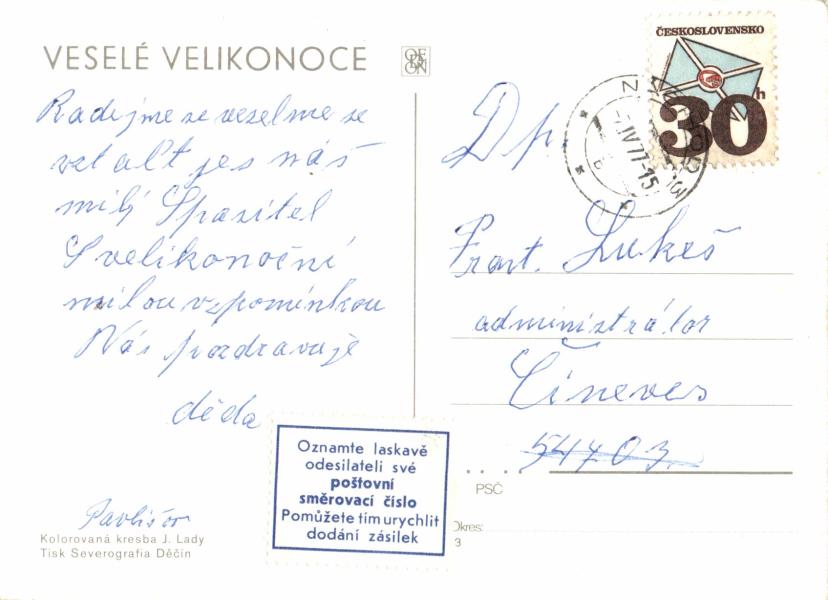 VESELÉ VELIKONOCE
ODEON
Radejme se veselme se
vstalť jes náš
milý Spasitel
S velikonoční
milou vzpomínkou
Vás pozdravuje
děda
Pavlišov
Kolorovaná kresba J. Lady
Tisk Severografia Děčín
Oznamte laskavě
odesilateli své
poštovní
směrovací číslo
Pomůžete tím urychlit
dodání zásilek
ČESKOSLOVENSKO
30h
IV 77-15
Dp.
Frant. Lukeš
administrátor
Činěves
54703
PSČ
Okres:
3